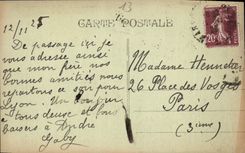 13
CARTE POSTALE
12/11 25
De passage ici je
vous adresse ainsi
que mon père nos
bonnes amitiés nous
repartons ce soir pour
Lyon. Un bonjour
à tous deux et bons
baisers à André
Gaby
Madame Hennetier
26 Place des Vosges
Paris
(3ème)
20